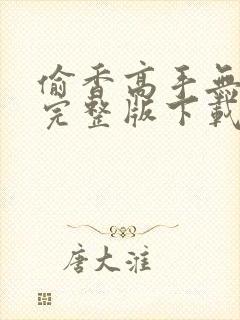 偷香高手無
完整版下載
唐大淮